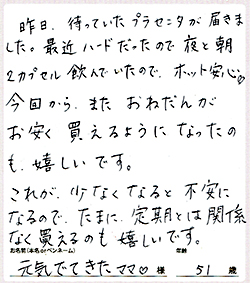 昨日、待っていたプラセンタが届きま
した。最近ハードだったので夜と朝
2カプセル飲んでいたので、ホット安心♡
今回から、また おねだんが
お安く買えるようになったの
も、嬉しいです。
これが、少なくなると不安に
なるので、たまに、定期とは関係
なく買えるのも嬉しいです。
お名前(本名orペンネーム) 年齢
元気でてきたママ♡ 様 51 歳